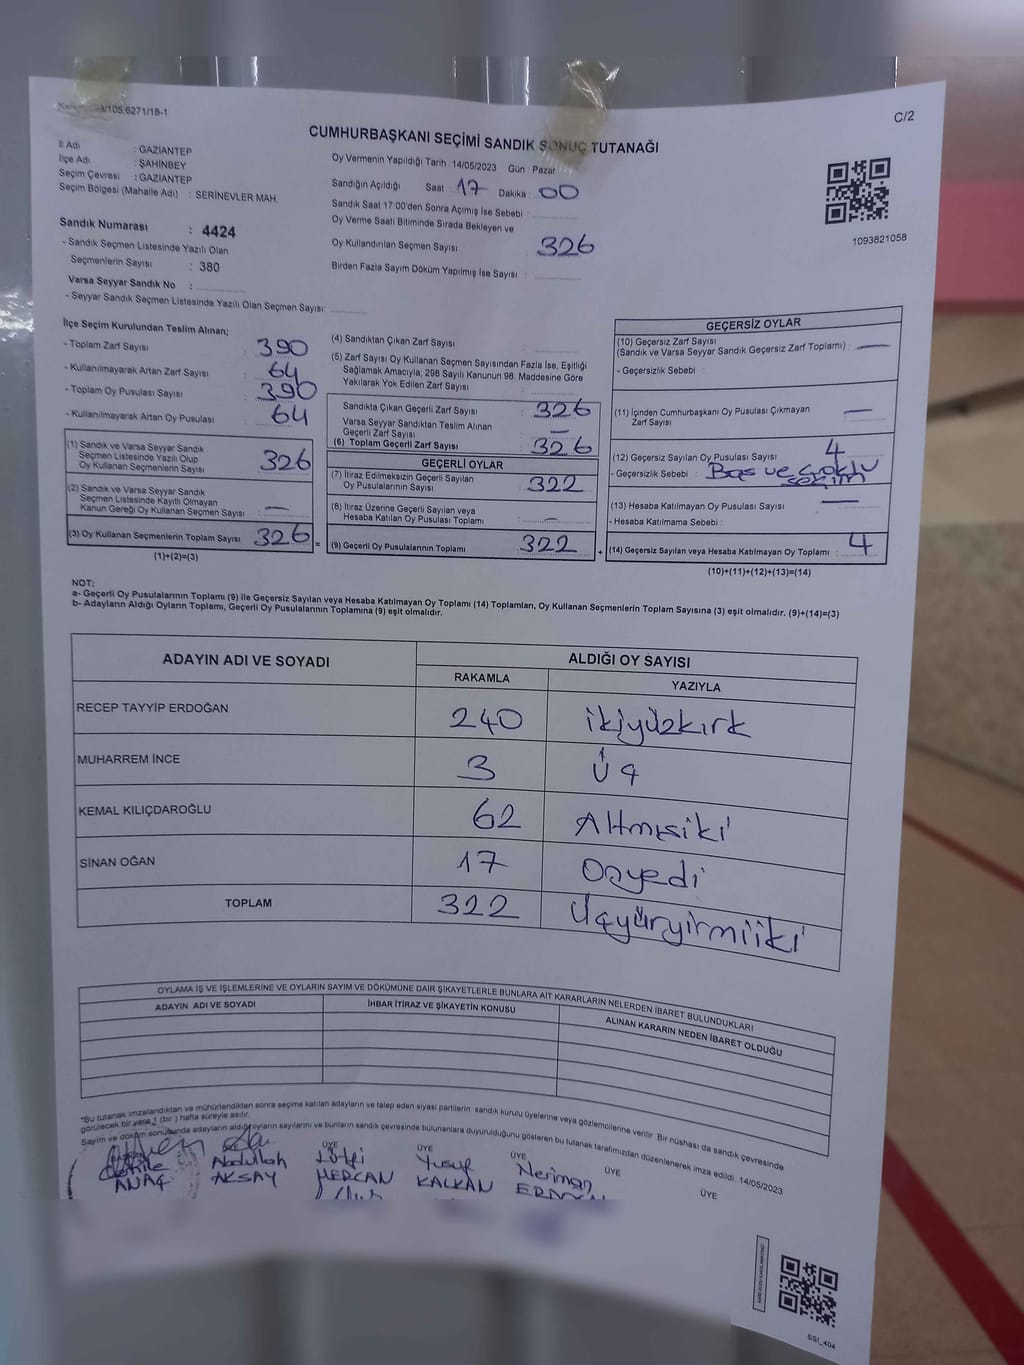 C/2
CUMHURBAŞKANI SEÇİMİ SANDIK SONUÇ TUTANAĞI
İl Adı : GAZİANTEP
İlçe Adı : ŞAHİNBEY
Seçim Çevresi : GAZİANTEP
Seçim Bölgesi (Mahalle Adı) : SERİNEVLER MAH.
Sandık Numarası : 4424
- Sandık Seçmen Listesinde Yazılı Olan
Seçmenlerin Sayısı : 380
Varsa Seyyar Sandık No :
- Seyyar Sandık Seçmen Listesinde Yazılı Olan Seçmen Sayısı:
Oy Vermenin Yapıldığı Tarih : 14/05/2023 Gün : Pazar
Sandığın Açıldığı Saat : 17 Dakika : 00
Sandık Saat 17:00'den Sonra Açımış İse Sebebi :
Oy Verme Saati Bitiminde Sırada Bekleyen ve
Oy Kullandırılan Seçmen Sayısı : 326
Birden Fazla Sayım Döküm Yapılmış İse Sayısı :
1093821058
İlçe Seçim Kurulundan Teslim Alınan;
- Toplam Zarf Sayısı : 390
- Kullanılmayarak Artan Zarf Sayısı : 64
- Toplam Oy Pusulası Sayısı : 390
- Kullanılmayarak Artan Oy Pusulası : 64
(1) Sandık ve Varsa Seyyar Sandık
Seçmen Listesinde Yazılı Olup
Oy Kullanan Seçmenlerin Sayısı : 326
(2) Sandık ve Varsa Seyyar Sandık
Seçmen Listesinde Kayıtlı Olmayan
Kanun Gereği Oy Kullanan Seçmen Sayısı : —
(3) Oy Kullanan Seçmenlerin Toplam Sayısı : 326 =
(1)+(2)=(3)
(4) Sandıktan Çıkan Zarf Sayısı :
(5) Zarf Sayısı Oy Kullanan Seçmen Sayısından Fazla İse, Eşitliği
Sağlamak Amacıyla, 298 Sayılı Kanunun 98. Maddesine Göre
Yakılarak Yok Edilen Zarf Sayısı :
Sandıkta Çıkan Geçerli Zarf Sayısı : 326
Varsa Seyyar Sandıktan Teslim Alınan
Geçerli Zarf Sayısı : —
(6) Toplam Geçerli Zarf Sayısı : 326
GEÇERLİ OYLAR
(7) İtiraz Edilmeksizin Geçerli Sayılan
Oy Pusulalarının Sayısı : 322
(8) İtiraz Üzerine Geçerli Sayılan veya
Hesaba Katılan Oy Pusulası Toplamı : —
(9) Geçerli Oy Pusulalarının Toplamı : 322 +
GEÇERSİZ OYLAR
(10) Geçersiz Zarf Sayısı
(Sandık ve Varsa Seyyar Sandık Geçersiz Zarf Toplamı) : —
- Geçersizlik Sebebi :
(11) İçinden Cumhurbaşkanı Oy Pusulası Çıkmayan
Zarf Sayısı : —
(12) Geçersiz Sayılan Oy Pusulası Sayısı : 4
- Geçersizlik Sebebi : Boş ve
seçim
(13) Hesaba Katılmayan Oy Pusulası Sayısı : —
- Hesaba Katılmama Sebebi :
(14) Geçersiz Sayılan veya Hesaba Katılmayan Oy Toplamı : 4
(10)+(11)+(12)+(13)=(14)
NOT:
a- Geçerli Oy Pusulalarının Toplamı (9) ile Geçersiz Sayılan veya Hesaba Katılmayan Oy Toplamı (14) Toplamları, Oy Kullanan Seçmenlerin Toplam Sayısına (3) eşit olmalıdır. (9)+(14)=(3)
b- Adayların Aldığı Oyların Toplamı, Geçerli Oy Pusulalarının Toplamına (9) eşit olmalıdır.
ADAYIN ADI VE SOYADI ALDIĞI OY SAYISI
RAKAMLA YAZIYLA
RECEP TAYYİP ERDOĞAN 240 ikiyüzkırk
MUHARREM İNCE 3 üç
KEMAL KILIÇDAROĞLU 62 Altmışiki
SİNAN OĞAN 17 Onyedi
TOPLAM 322 Üçyüzyirmiiki
OYLAMA İŞ VE İŞLEMLERİNE VE OYLARIN SAYIM VE DÖKÜMÜNE DAİR ŞİKAYETLERLE BUNLARA AİT KARARLARIN NELERDEN İBARET BULUNDUKLARI
ADAYIN ADI VE SOYADI İHBAR İTİRAZ VE ŞİKAYETİN KONUSU ALINAN KARARIN NEDEN İBARET OLDUĞU
*Bu tutanak imzalandıktan ve mühürlendikten sonra seçime katılan adayların ve talep eden siyasi partilerin sandık kurulu üyelerine veya gözlemcilerine verilir. Bir nüshası da sandık çevresinde
görülecek bir yere 1 (bir) hafta süreyle asılır.
Sayım ve döküm sonucunda adayların aldığı oyların sayılarını ve bunların sandık çevresinde bulunanlara duyurulduğunu gösteren bu tutanak tarafımızdan düzenlenerek imza edildi. 14/05/2023
ÜYE ÜYE ÜYE ÜYE ÜYE
Abdullah Lütfi Yusuf Neriman
ANAÇ AKSAY MERCAN KALKAN
SSI_404